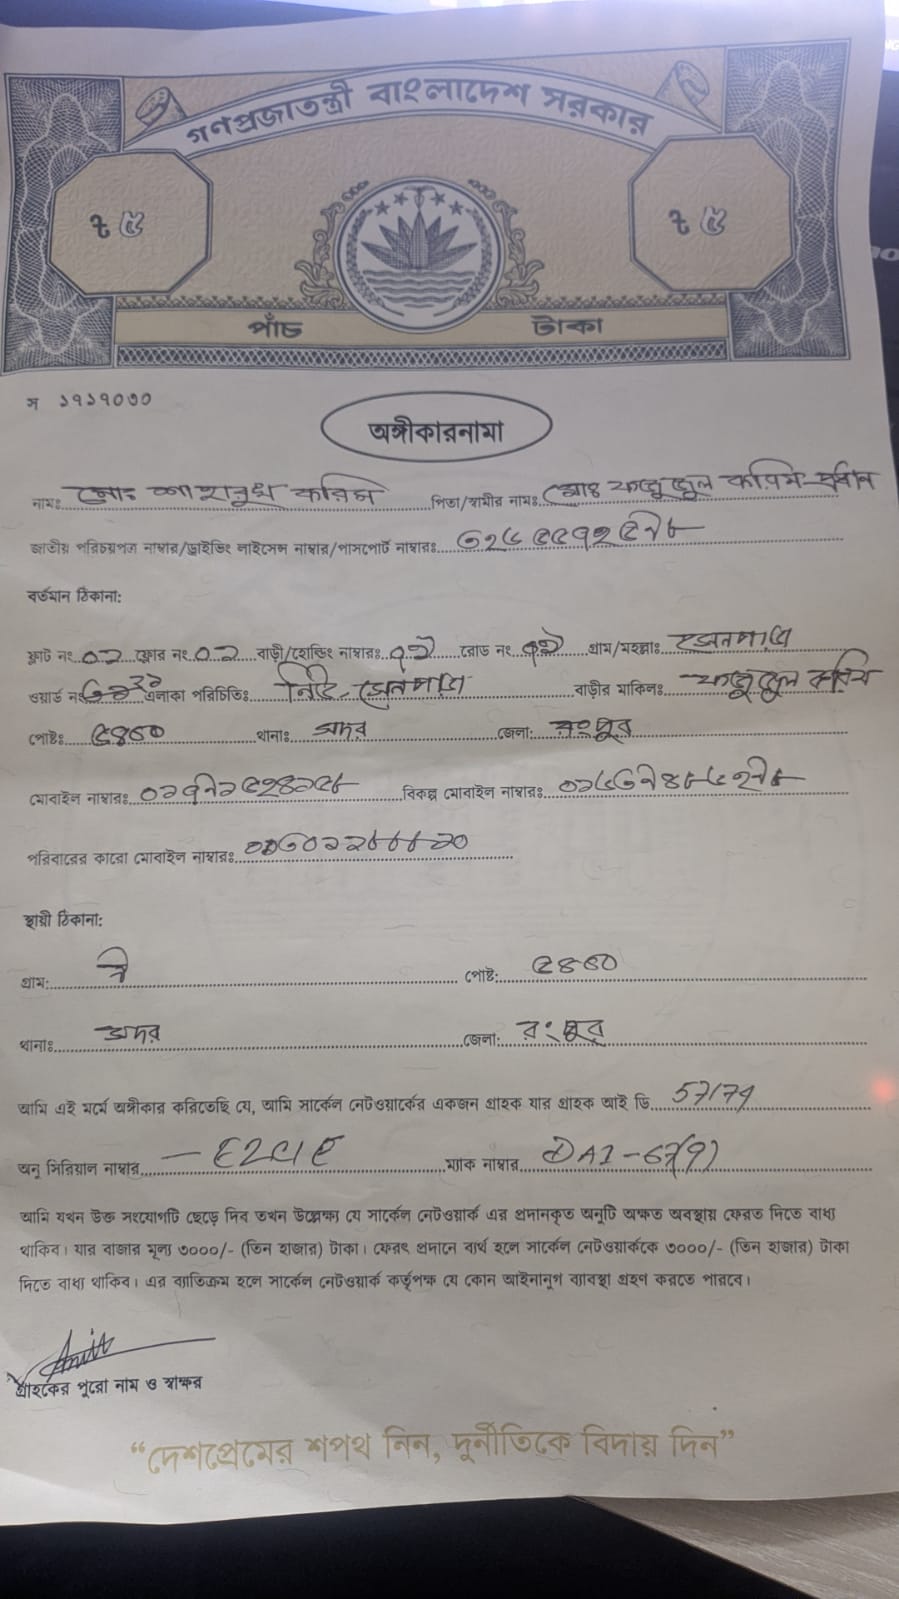 গণপ্রজাতন্ত্রী বাংলাদেশ সরকার
৳ ৫ ৳ ৫
পাঁচ টাকা
স ১৭১৭০৩০
অঙ্গীকারনামা
নামঃ মোঃ করিম পিতা/স্বামীর নামঃ মোঃ ফজলুল করিম
জাতীয় পরিচয়পত্র নাম্বার/ড্রাইভিং লাইসেন্স নাম্বার/পাসপোর্ট নাম্বারঃ
বর্তমান ঠিকানা:
ফ্লাট নং ০২ ফ্লোর নং ০২ বাড়ী/হোল্ডিং নাম্বারঃ রোড নং গ্রাম/মহল্লাঃ সেনপাড়া
ওয়ার্ড নং এলাকা পরিচিতিঃ সেনপাড়া বাড়ীর মালিকঃ ফজলুল করিম
পোষ্টঃ ৫৪০০ থানাঃ সদর জেলা: রংপুর
মোবাইল নাম্বারঃ বিকল্প মোবাইল নাম্বারঃ
পরিবারের কারো মোবাইল নাম্বারঃ
স্থায়ী ঠিকানা:
গ্রাম: ঐ পোষ্ট: ৫৪০০
থানাঃ সদর জেলা: রংপুর
আমি এই মর্মে অঙ্গীকার করিতেছি যে, আমি সার্কেল নেটওয়ার্কের একজন গ্রাহক যার গ্রাহক আই ডি
অনু সিরিয়াল নাম্বার ম্যাক নাম্বার
আমি যখন উক্ত সংযোগটি ছেড়ে দিব তখন উল্লেক্ষ্য যে সার্কেল নেটওয়ার্ক এর প্রদানকৃত অনুটি অক্ষত অবস্থায় ফেরত দিতে বাধ্য
থাকিব। যার বাজার মূল্য ৩০০০/- (তিন হাজার) টাকা। ফেরৎ প্রদানে ব্যর্থ হলে সার্কেল নেটওয়ার্ককে ৩০০০/- (তিন হাজার) টাকা
দিতে বাধ্য থাকিব। এর ব্যতিক্রম হলে সার্কেল নেটওয়ার্ক কর্তৃপক্ষ যে কোন আইনানুগ ব্যাবস্থা গ্রহণ করতে পারবে।
গ্রাহকের পুরো নাম ও স্বাক্ষর
“দেশপ্রেমের শপথ নিন, দুর্নীতিকে বিদায় দিন”